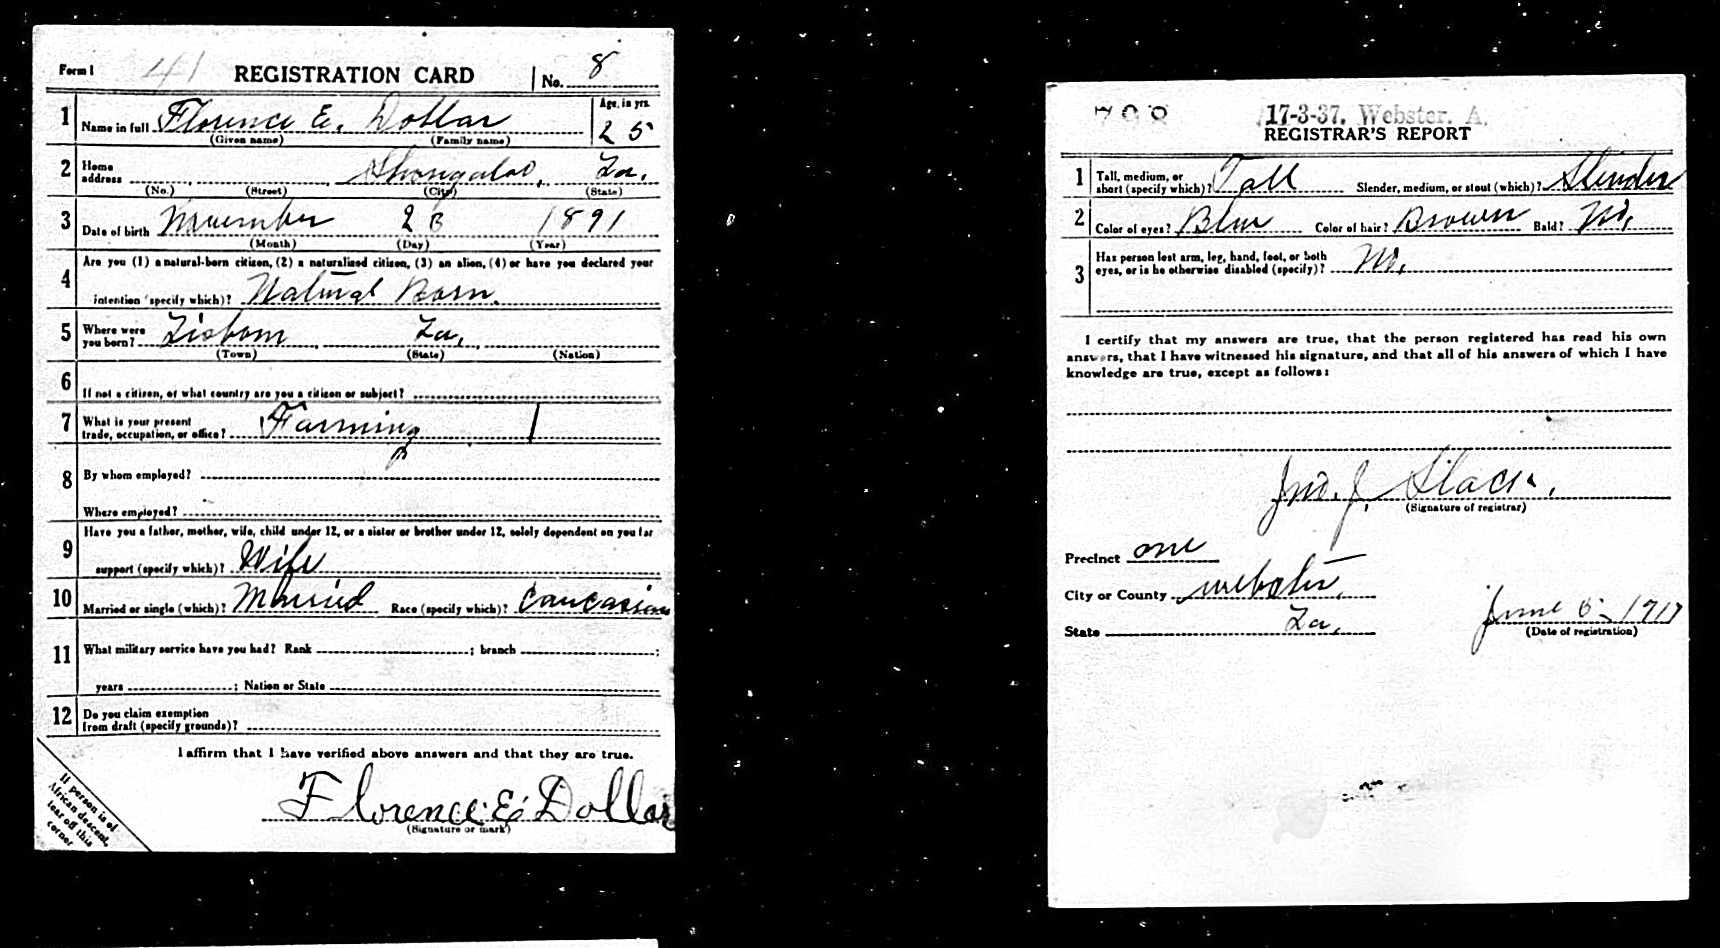 Form 1 41 REGISTRATION CARD No. 8
1 Name in full Florence E. Dollar Age, in yrs. 25
(Given name) (Family name)
2 Home address Shongaloo, La.
(No.) (Street) (City) (State)
3 Date of birth November 28 1891
(Month) (Day) (Year)
4 Are you (1) a natural-born citizen, (2) a naturalized citizen, (3) an alien, (4) or have you declared your
intention (specify which)? Natural Born.
5 Where were you born? Lisbom La.
(Town) (State) (Nation)
6 If not a citizen, of what country are you a citizen or subject?
7 What is your present trade, occupation, or office? Farming
8 By whom employed?
Where employed?
9 Have you a father, mother, wife, child under 12, or a sister or brother under 12, solely dependent on you for
support (specify which)? Wife
10 Married or single (which)? Married Race (specify which)? Caucasian
11 What military service have you had? Rank ; branch ;
years ; Nation or State
12 Do you claim exemption from draft (specify grounds)?
I affirm that I have verified above answers and that they are true.
Florence E. Dollar
(Signature or mark)
If person is of
African descent,
tear off this
corner
798 17-3-37. Webster. A.
REGISTRAR'S REPORT
1 Tall, medium, or short (specify which)? Tall Slender, medium, or stout (which)? Slender
2 Color of eyes? Blue Color of hair? Brown Bald? No.
3 Has person lost arm, leg, hand, foot, or both
eyes, or is he otherwise disabled (specify)? No.
I certify that my answers are true, that the person registered has read his own
answers, that I have witnessed his signature, and that all of his answers of which I have
knowledge are true, except as follows:
Jno. J. Slack.
(Signature of registrar)
Precinct one
City or County Webster.
State La. June 5- 1917
(Date of registration)